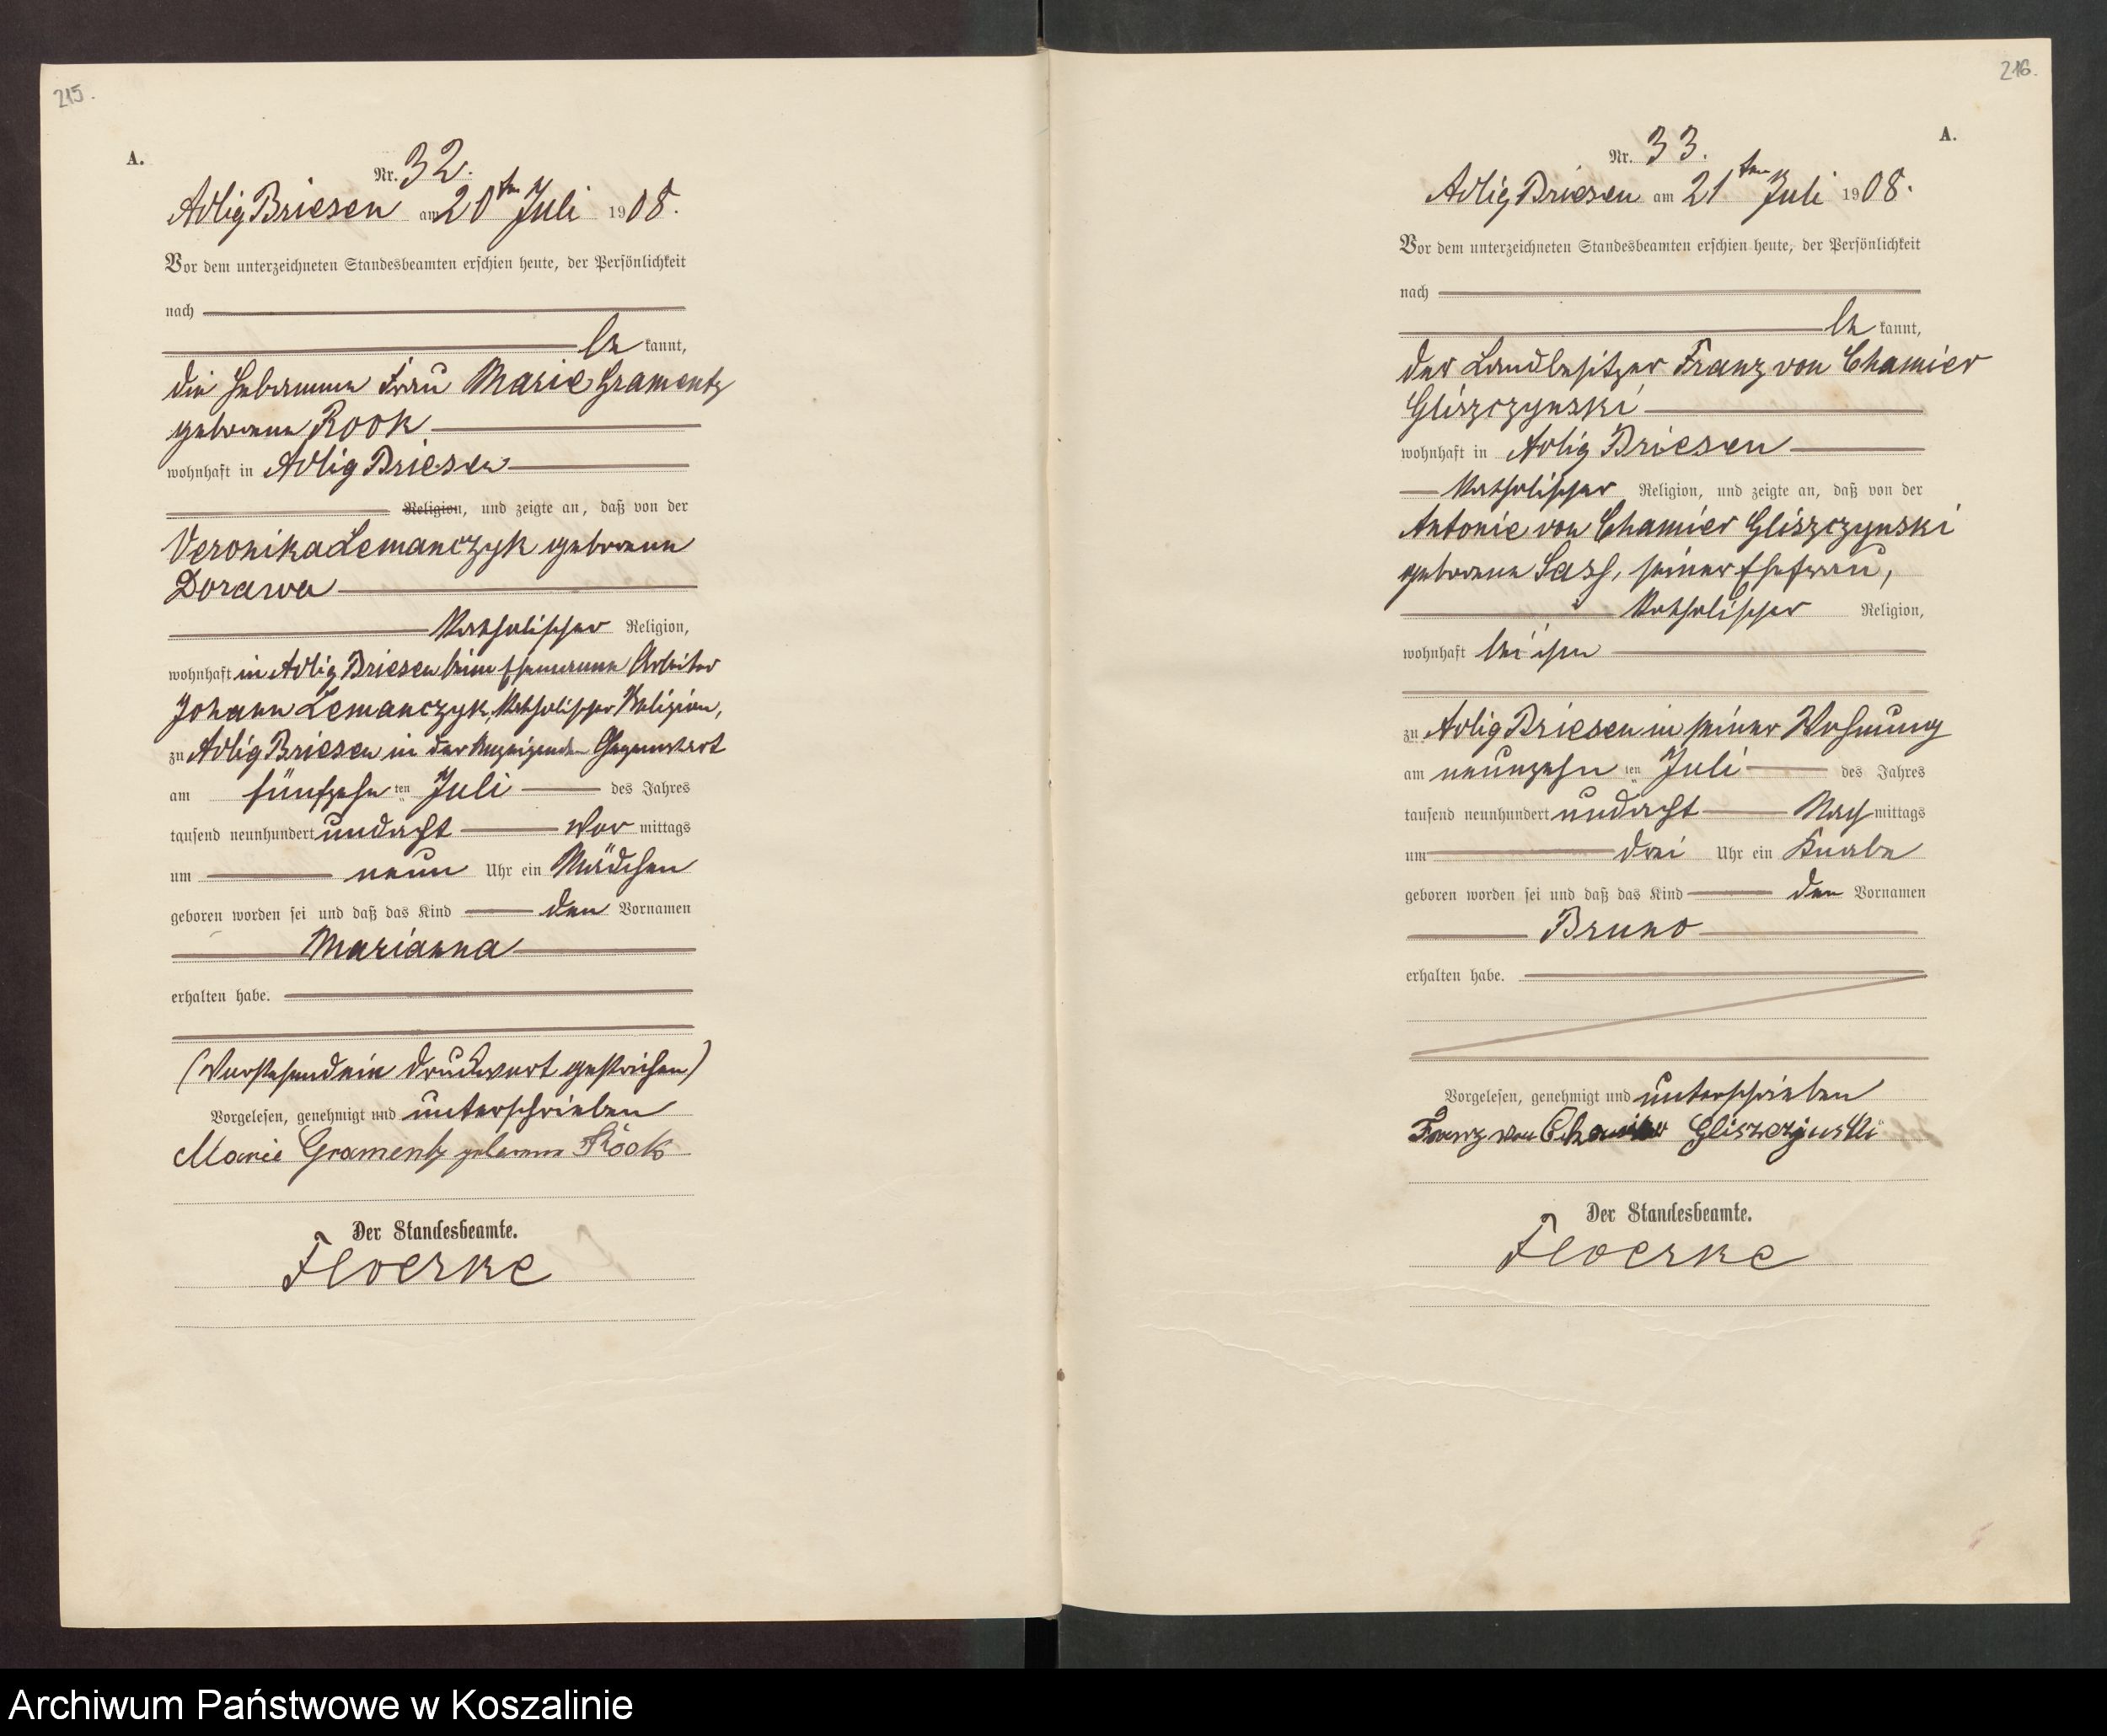 215.
A.
Nr. 32.
Adlig Briesen am 20ten Juli 1908.
Vor dem unterzeichneten Standesbeamten erschien heute, der Persönlichkeit
nach
be kannt,
die Hebamme Frau Marie Gramentz
geborene Rook
wohnhaft in Adlig Briesen
Religion, und zeigte an, daß von der
Veronika Lemanczyk geborene
Dorawa
katholischer Religion,
wohnhaft in Adlig Briesen beim Ehemanne Arbeiter
Johann Lemanczyk, katholischer Religion,
zu Adlig Briesen in der Anzeigenden Gegenwart
am fünfzehn ten Juli des Jahres
tausend neunhundert und acht Vor mittags
um neun Uhr ein Mädchen
geboren worden sei und daß das Kind den Vornamen
Marianna
erhalten habe.
(Vorstehend ein Druckwort gestrichen)
Vorgelesen, genehmigt und unterschrieben
Marie Gramentz geborene Rook
Der Standesbeamte.
Floerke
216.
A.
Nr. 33.
Adlig Briesen am 21ten Juli 1908.
Vor dem unterzeichneten Standesbeamten erschien heute, der Persönlichkeit
nach
be kannt,
der Landbesitzer Franz von Chamier
Gliszczynski
wohnhaft in Adlig Briesen
katholischer Religion, und zeigte an, daß von der
Antonie von Chamier Gliszczynski
geborene Sass, seiner Ehefrau,
katholischer Religion,
wohnhaft bei ihm
zu Adlig Briesen in seiner Wohnung
am neunzehn ten Juli des Jahres
tausend neunhundert und acht Nach mittags
um drei Uhr ein Knabe
geboren worden sei und daß das Kind den Vornamen
Bruno
erhalten habe.
Vorgelesen, genehmigt und unterschrieben
Franz von Chamier Gliszczynski
Der Standesbeamte.
Floerke
Archiwum Państwowe w Koszalinie